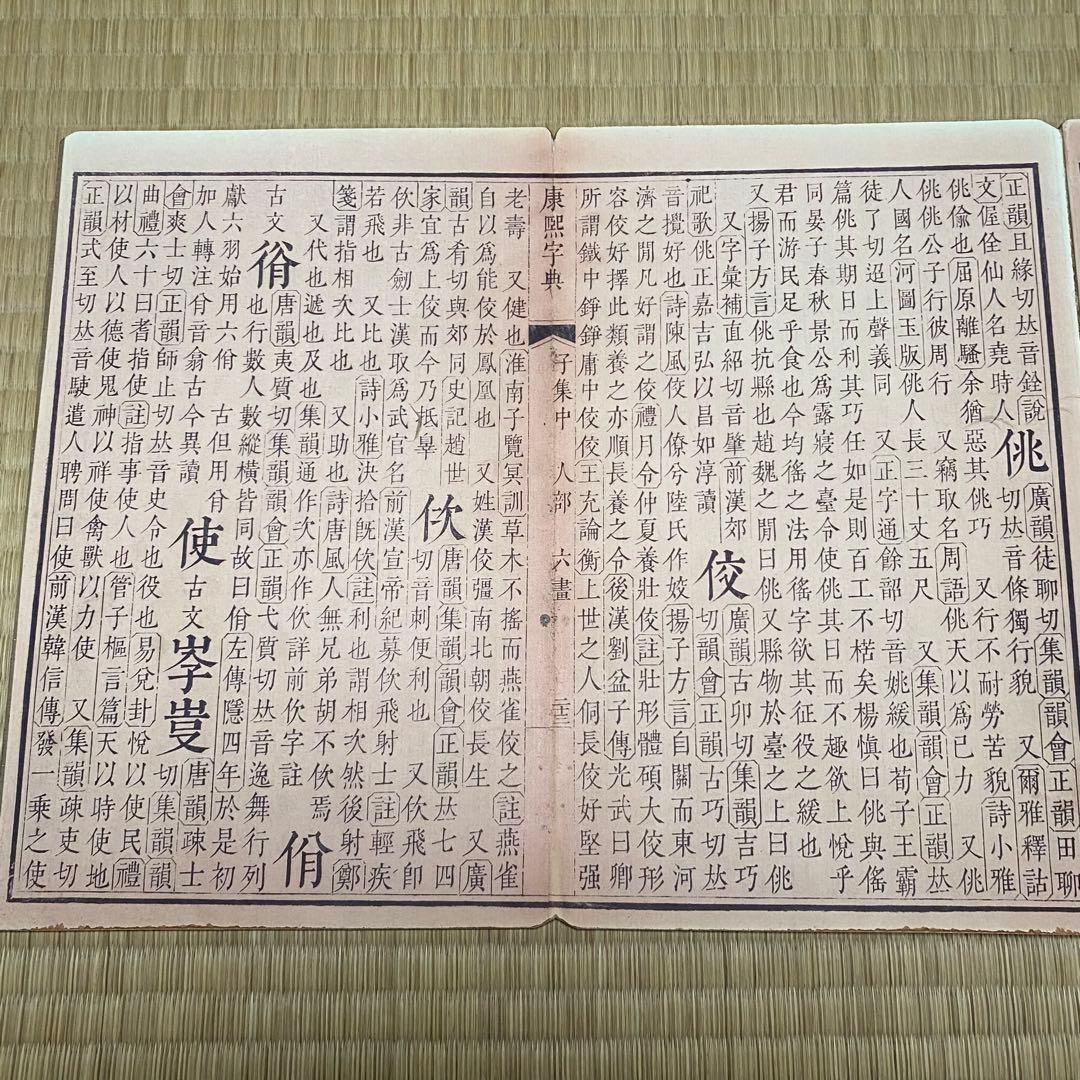 正韻且緣切𠀤音銓說
文偓佺仙人名堯時人
佻
廣韻徒聊切集韻韻會正韻田聊
切𠀤音條獨行貌 又爾雅釋詁
佻偷也屈原離騷余猶惡其佻巧 又行不耐勞苦貌詩小雅
佻佻公子行彼周行 又竊取名周語佻天以爲己力 又佻
人國名河圖玉版佻人長三十丈五尺 又集韻韻會正韻𠀤
徒了切迢上聲義同 又正字通餘韶切音姚緩也荀子王霸
篇佻其期日而利其巧任如是則百工不楛矣楊愼曰佻與傜
同晏子春秋景公爲露寢之臺令使佻其日而不趣欲上悅乎
君而游民足乎食也今均徭之法用徭字欲其征役之緩也
又揚子方言佻抗縣也趙魏之閒曰佻又縣物於臺之上曰佻
又字彙補直紹切音肇前漢郊
祀歌佻正嘉古弘以昌如淳讀
佼
廣韻古卯切集韻吉巧
切韻會正韻古巧切𠀤
音攪好也詩陳風佼人僚兮陸氏作姣揚子方言自關而東河
濟之閒凡好謂之佼禮月令仲夏養壯佼註壯形體碩大佼形
容佼好擇此類養之亦順長養之令後漢劉盆子傳光武曰卿
所謂鐵中錚錚庸中佼佼王充論衡上世之人侗長佼好堅强
康熙字典 子集中 人部 六畫 二十三
老壽 又健也淮南子覽冥訓草木不搖而燕雀佼之註燕雀
自以爲能佼於鳳凰也 又姓漢佼彊南北朝佼長生 又廣
韻古肴切與郊同史記趙世
家宜爲上佼而今乃抵辠
佽
唐韻集韻韻會正韻𠀤七四
切音刺便利也 又佽飛卽
佽非古劒士漢取爲武官名前漢宣帝紀募佽飛射士註輕疾
若飛也 又比也詩小雅決拾旣佽註利也謂相次然後射鄭
箋謂指相次比也 又助也詩唐風人無兄弟胡不佽焉
又代也遞也及也集韻通作次亦作佽詳前佽字註
佾
古文
唐韻夷質切集韻韻會正韻弋質切𠀤音逸舞行列
也行數人數縱橫皆同故曰佾左傳隱四年於是初
獻六羽始用六佾 古但用
加人轉注 音翕古今異讀
使
古文
唐韻疎士
切集韻韻
會爽士切正韻師止切𠀤音史令也役也易兌卦悅以使民禮
曲禮六十曰耆指使註指事使人也管子樞言篇天以時使地
以材使人以德使鬼神以祥使禽獸以力使 又集韻疎吏切
正韻式至切𠀤音駛遣人聘問曰使前漢韓信傳發一乘之使